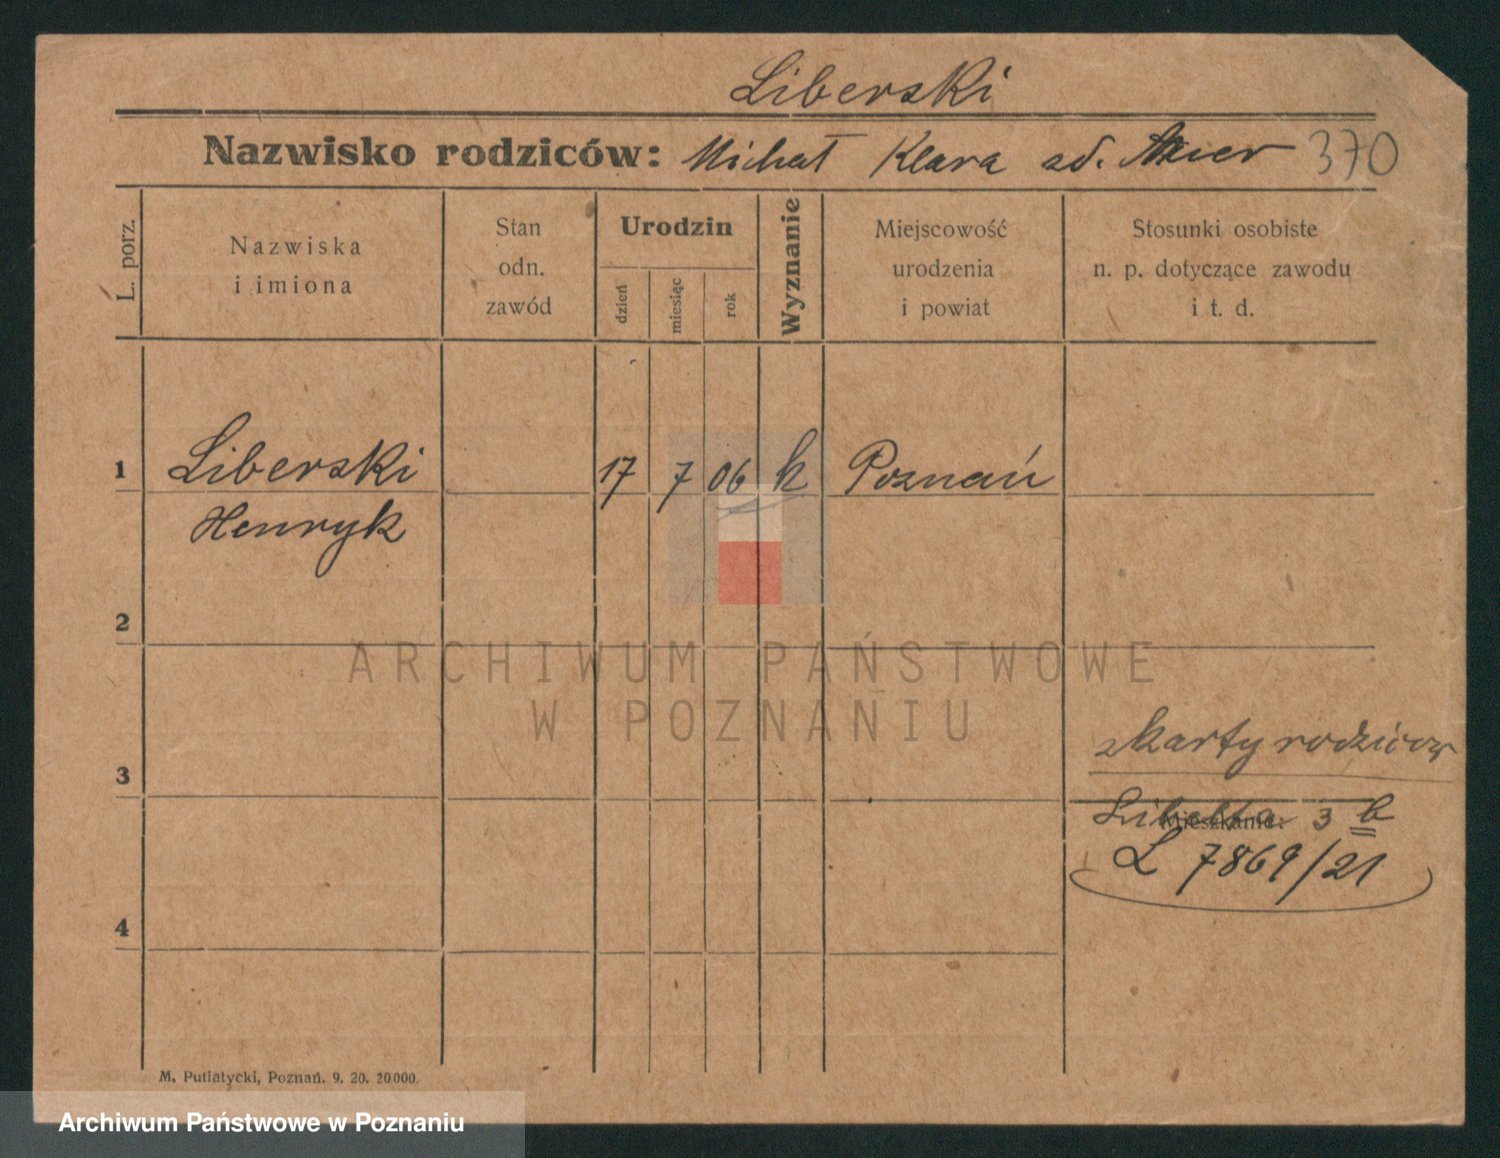 Liberski
Nazwisko rodziców: Michał Klara zd. 370
L. porz.
Nazwiska
i imiona
Stan
odn.
zawód
Urodzin
dzień
miesiąc
rok
Wyznanie
Miejscowość
urodzenia
i powiat
Stosunki osobiste
n. p. dotyczące zawodu
i t. d.
1 Liberski 17 7 06 k Poznań
Henryk
2
3
4
z karty rodziców
Mieszkanie:
Libelta 3 b
L 7869/21
M. Putiatycki, Poznań. 9. 20. 20000.
ARCHIWUM PAŃSTWOWE
W POZNANIU
Archiwum Państwowe w Poznaniu